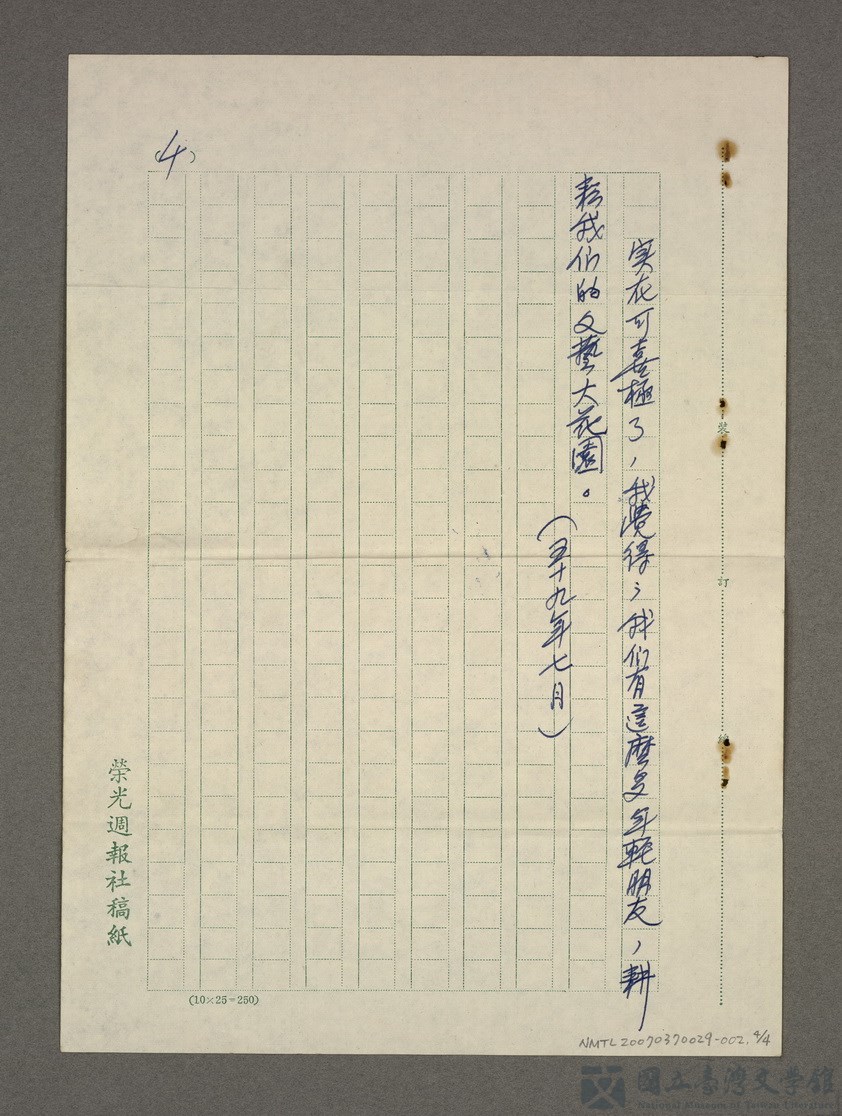 實在可喜極了,我覺得,我们有這麼多年輕朋友,耕
耘我们的文藝大花園。
(五十九年七月)
(4)
裝
訂
線
榮光週報社稿紙
(10×25=250)
NMTL20070370029-002, 4/4
國立臺灣文學館
National Museum of Taiwan Literature